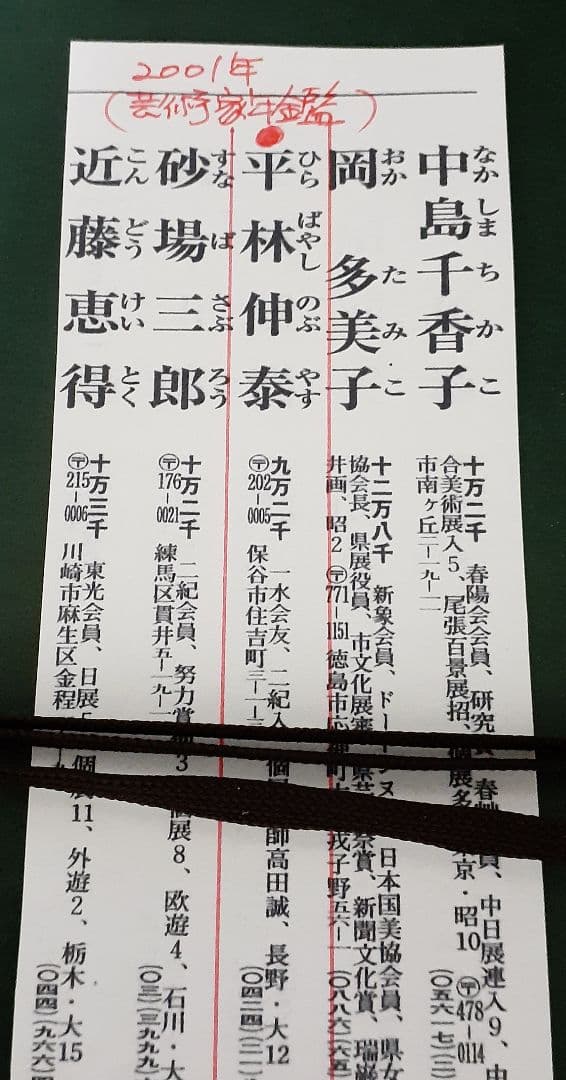 2001年
(芸術家年鑑)
中島千香子
なかしまちかこ
十万二千 春陽会会員、研究 春 員、中日展連入9、中
合美術展入5、尾張百景展招、個展多 京・昭10 〒478-0114
市南ヶ丘三-一九-二 (〇五六一七)(二
岡多美子
おかたみこ
十二万八千 新象会員、ドー ヌ 日本国美協会員、県女
協会長、県展役員、市文化展審 県芸 祭賞、新聞文化賞、瑞巌
井画、昭2 〒771-1151 徳島市応神町 我子野五六-一 (〇八八六)(六五
平林伸泰
ひらばやしのぶやす
九万二千 一水会友、二紀入 個展 師高田誠、長野・大12
〒202-0005 保谷市住吉町三-一- (〇四二四)(二
砂場三郎
すなばさぶろう
十万二千 二紀会員、努力賞 3 個展8、欧遊4、石川・大
〒176-0021 練馬区貫井五-一九-一 (〇三)(三九九九)
近藤恵得
こんどうけいとく
十万三千 東光会員、日展5 個展11、外遊2、栃木・大15
〒215-0006 川崎市麻生区金程 (〇四四)(九六六)(四